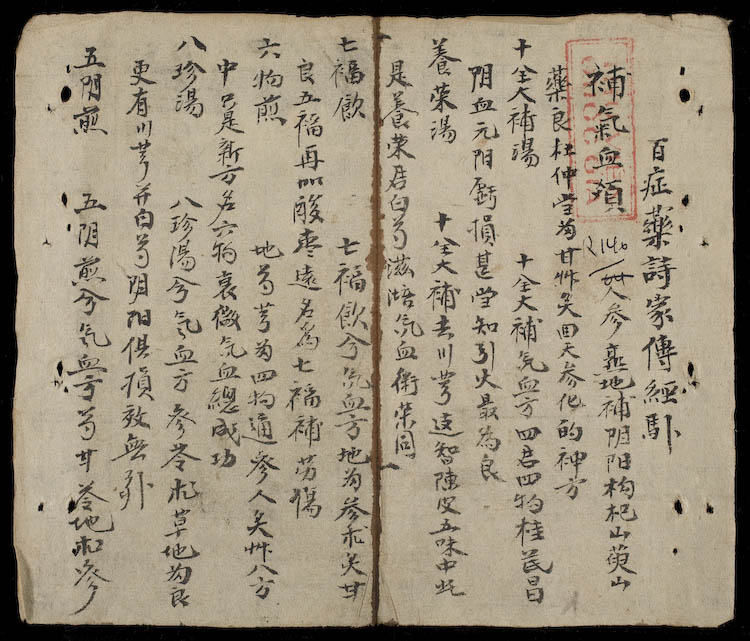 百症藥詩家傳經馸
補氣血類
R140
人參熟地補阴阳枸杞山萸山
藥良杜仲當为甘艸炙回天參化的神方
十全大補湯 十全大補气血方四君四物桂芪昌
阴血元阳虧損甚當知引火最為良
養榮湯 十全大補去川芎遠智陳皮五味中此
是養榮君白芍滋培気血衛榮同
七福飲 七福飲兮気血方地为參朮炙甘
良五福再加酸枣遠名為七福補劳傷
六物煎 地芍芎为四物通參人炙艸八方
中只是新方名六物衰微气血總成功
八珍湯 八珍湯兮气血方參苓朮草地为良
更有川芎并白芍阴阳俱損效無
五阴煎 五阴煎兮气血方芍甘苓地朮參